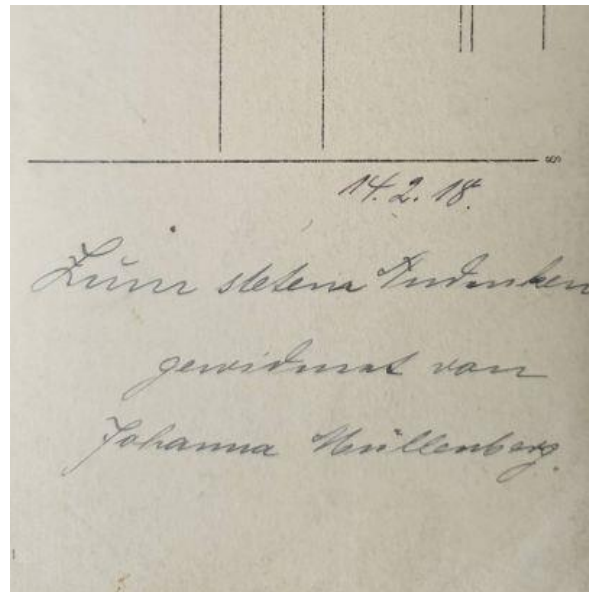 14.2.18.
Zum steten Andenken
gewidmet von
Johanna Müllenberg.